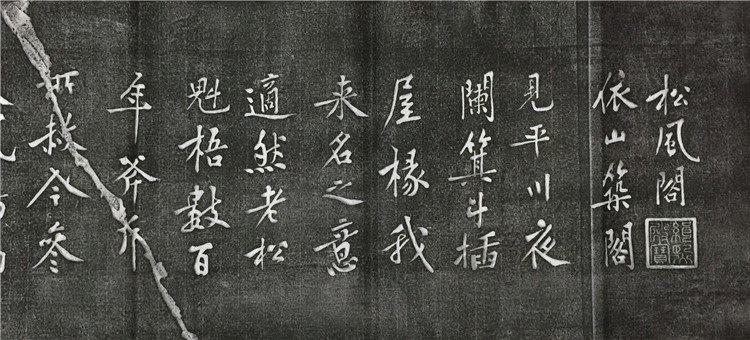 松風閣
依山築閣
見平川夜
闌箕斗插
屋椽我
来名之意
適然老松
魁梧數百
年斧斤
所赦今參